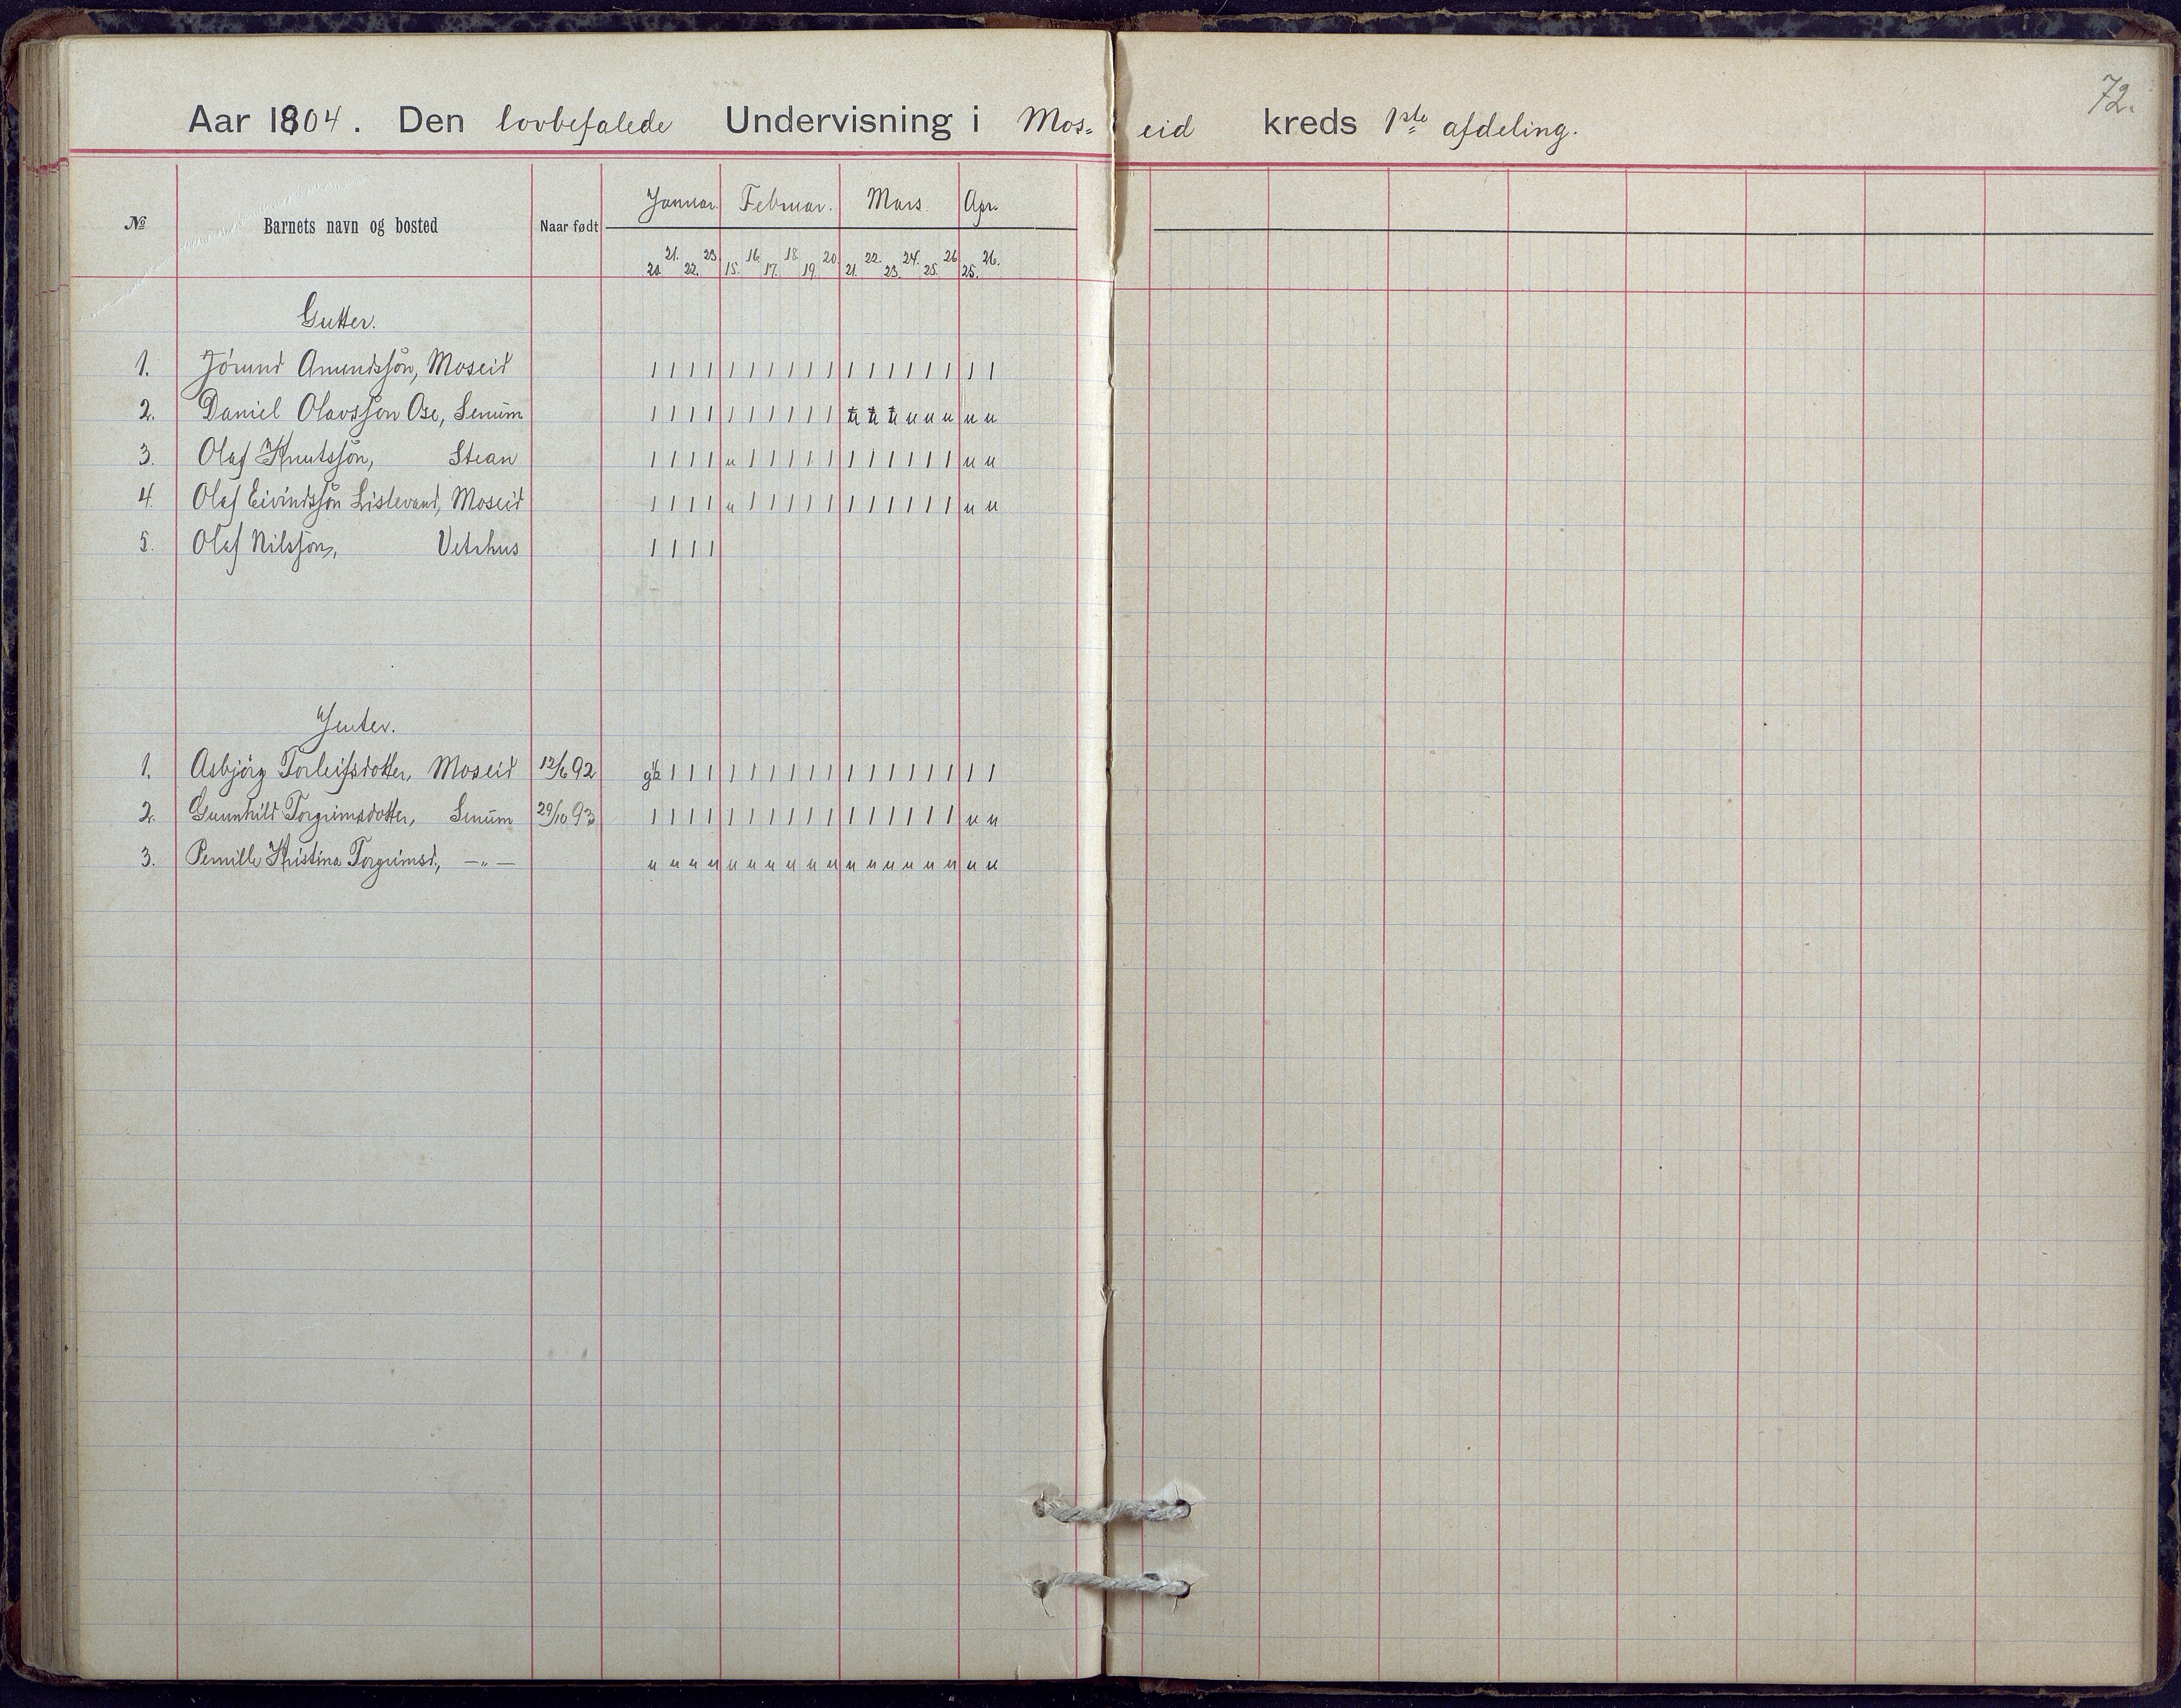 72.
Aar 1904. Den lovbefalede Undervisning i Mos= eid kreds 1ste afdeling.
№ Barnets navn og bosted Naar født Januar. Februar. Mars. Apr.
20. 21. 22. 23. 15. 16. 17. 18. 19. 20. 21. 22. 23. 24. 25. 26. 25. 26.
Gutter.
1. Jörund Amundssön, Moseid 1 1 1 1 1 1 1 1 1 1 1 1 1 1 1 1 1 1
2. Daniel Olavssön Ose, Senum 1 1 1 1 1 1 1 1 1 1 u u u u u u u u
3. Olaf Knutssön, Stean 1 1 1 1 u 1 1 1 1 1 1 1 1 1 1 1 u u
4. Olaf Eivindssön Lislevand, Moseid 1 1 1 1 u 1 1 1 1 1 1 1 1 1 1 1 u u
5. Olaf Nilssön, Vetrhus 1 1 1 1
Jenter.
1. Asbjörg Torleifsdotter, Moseid 12/6 92 1 1 1 1 1 1 1 1 1 1 1 1 1 1 1 1 1
2. Gunnhild Torgrimsdotter, Senum 29/10 93 1 1 1 1 1 1 1 1 1 1 1 1 1 1 1 1 u u
3. Pernille Kristina Torgrimsd., —„— u u u u u u u u u u u u u u u u u u